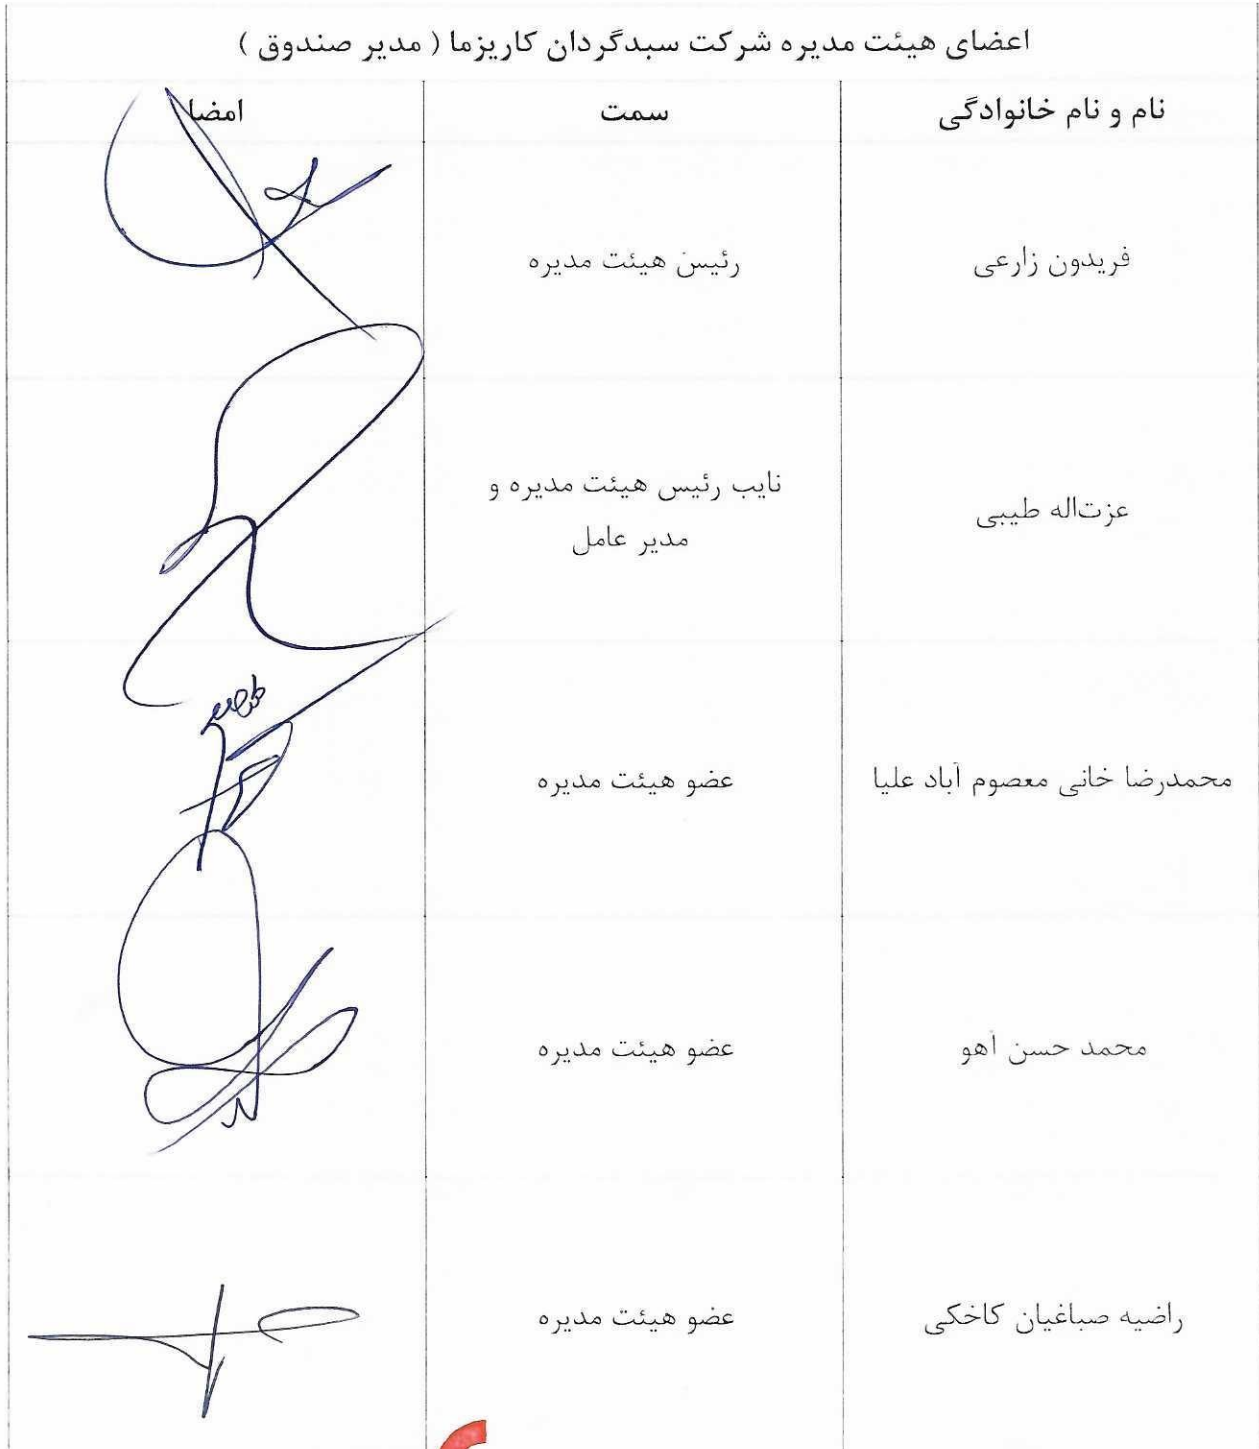 اعضای هیئت مدیره شرکت سبدگردان کاریزما ( مدیر صندوق )
نام و نام خانوادگی سمت امضا
فریدون زارعی رئیس هیئت مدیره
عزت‌اله طیبی نایب رئیس هیئت مدیره و
مدیر عامل
محمدرضا خانی معصوم آباد علیا عضو هیئت مدیره
محمد حسن آهو عضو هیئت مدیره
راضیه صباغیان کاخکی عضو هیئت مدیره